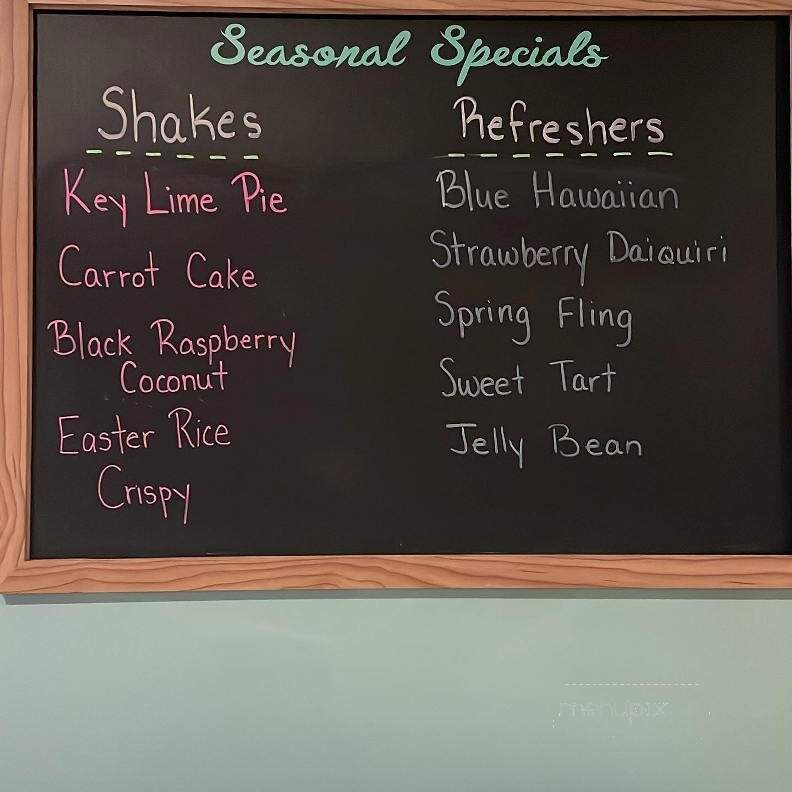 Seasonal Specials
Shakes
Key Lime Pie
Carrot Cake
Black Raspberry
Coconut
Easter Rice
Crispy
Refreshers
Blue Hawaiian
Strawberry Daiquiri
Spring Fling
Sweet Tart
Jelly Bean
menupix